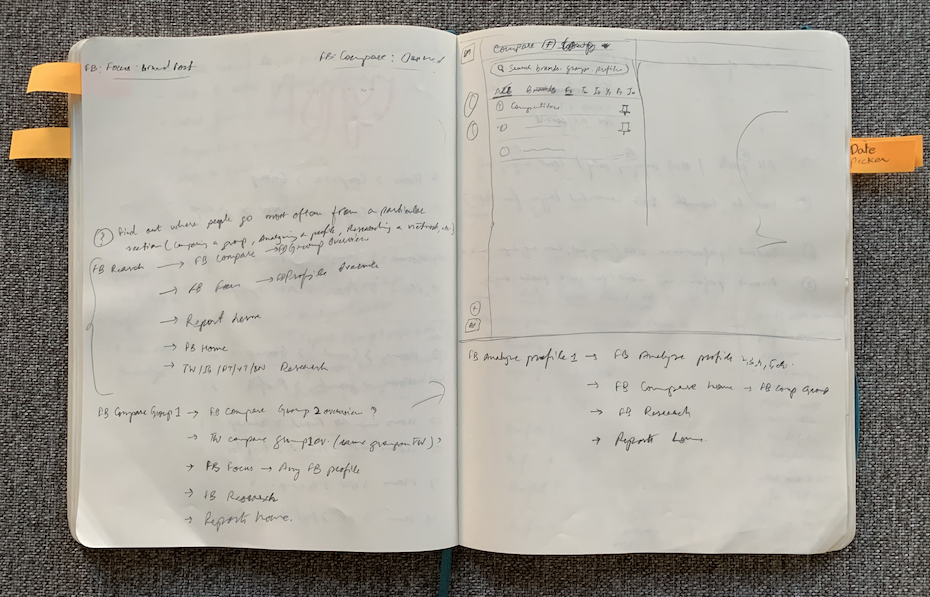 FB: Focus: Brand Post
FB: Compare:
? Find out where people go most often from a particular
section (Comparing a group, Analyzing a profile, Researching a network, etc)
FB Research → FB Compare → FB Group Overview
→ FB Focus → FB Profile Overview
→ Report home
→ FB Home
→ TW/IG/PT/YT/LN Research
FB Compare Group 1 → FB Compare Group 2 overview ?
→ TW compare group 1 ov. (same group on TW) ?
→ FB Focus → Any FB profile
→ FB Research
→ Reports home.
Compare
Search brands, groups, profiles
ALL Brands
Competitors
FB Analyze profile 1 → FB Analyze profile 2,3,4,5, etc.
→ FB Compare home → FB Comp Group
→ FB Research
→ Reports home.
Date
Picker